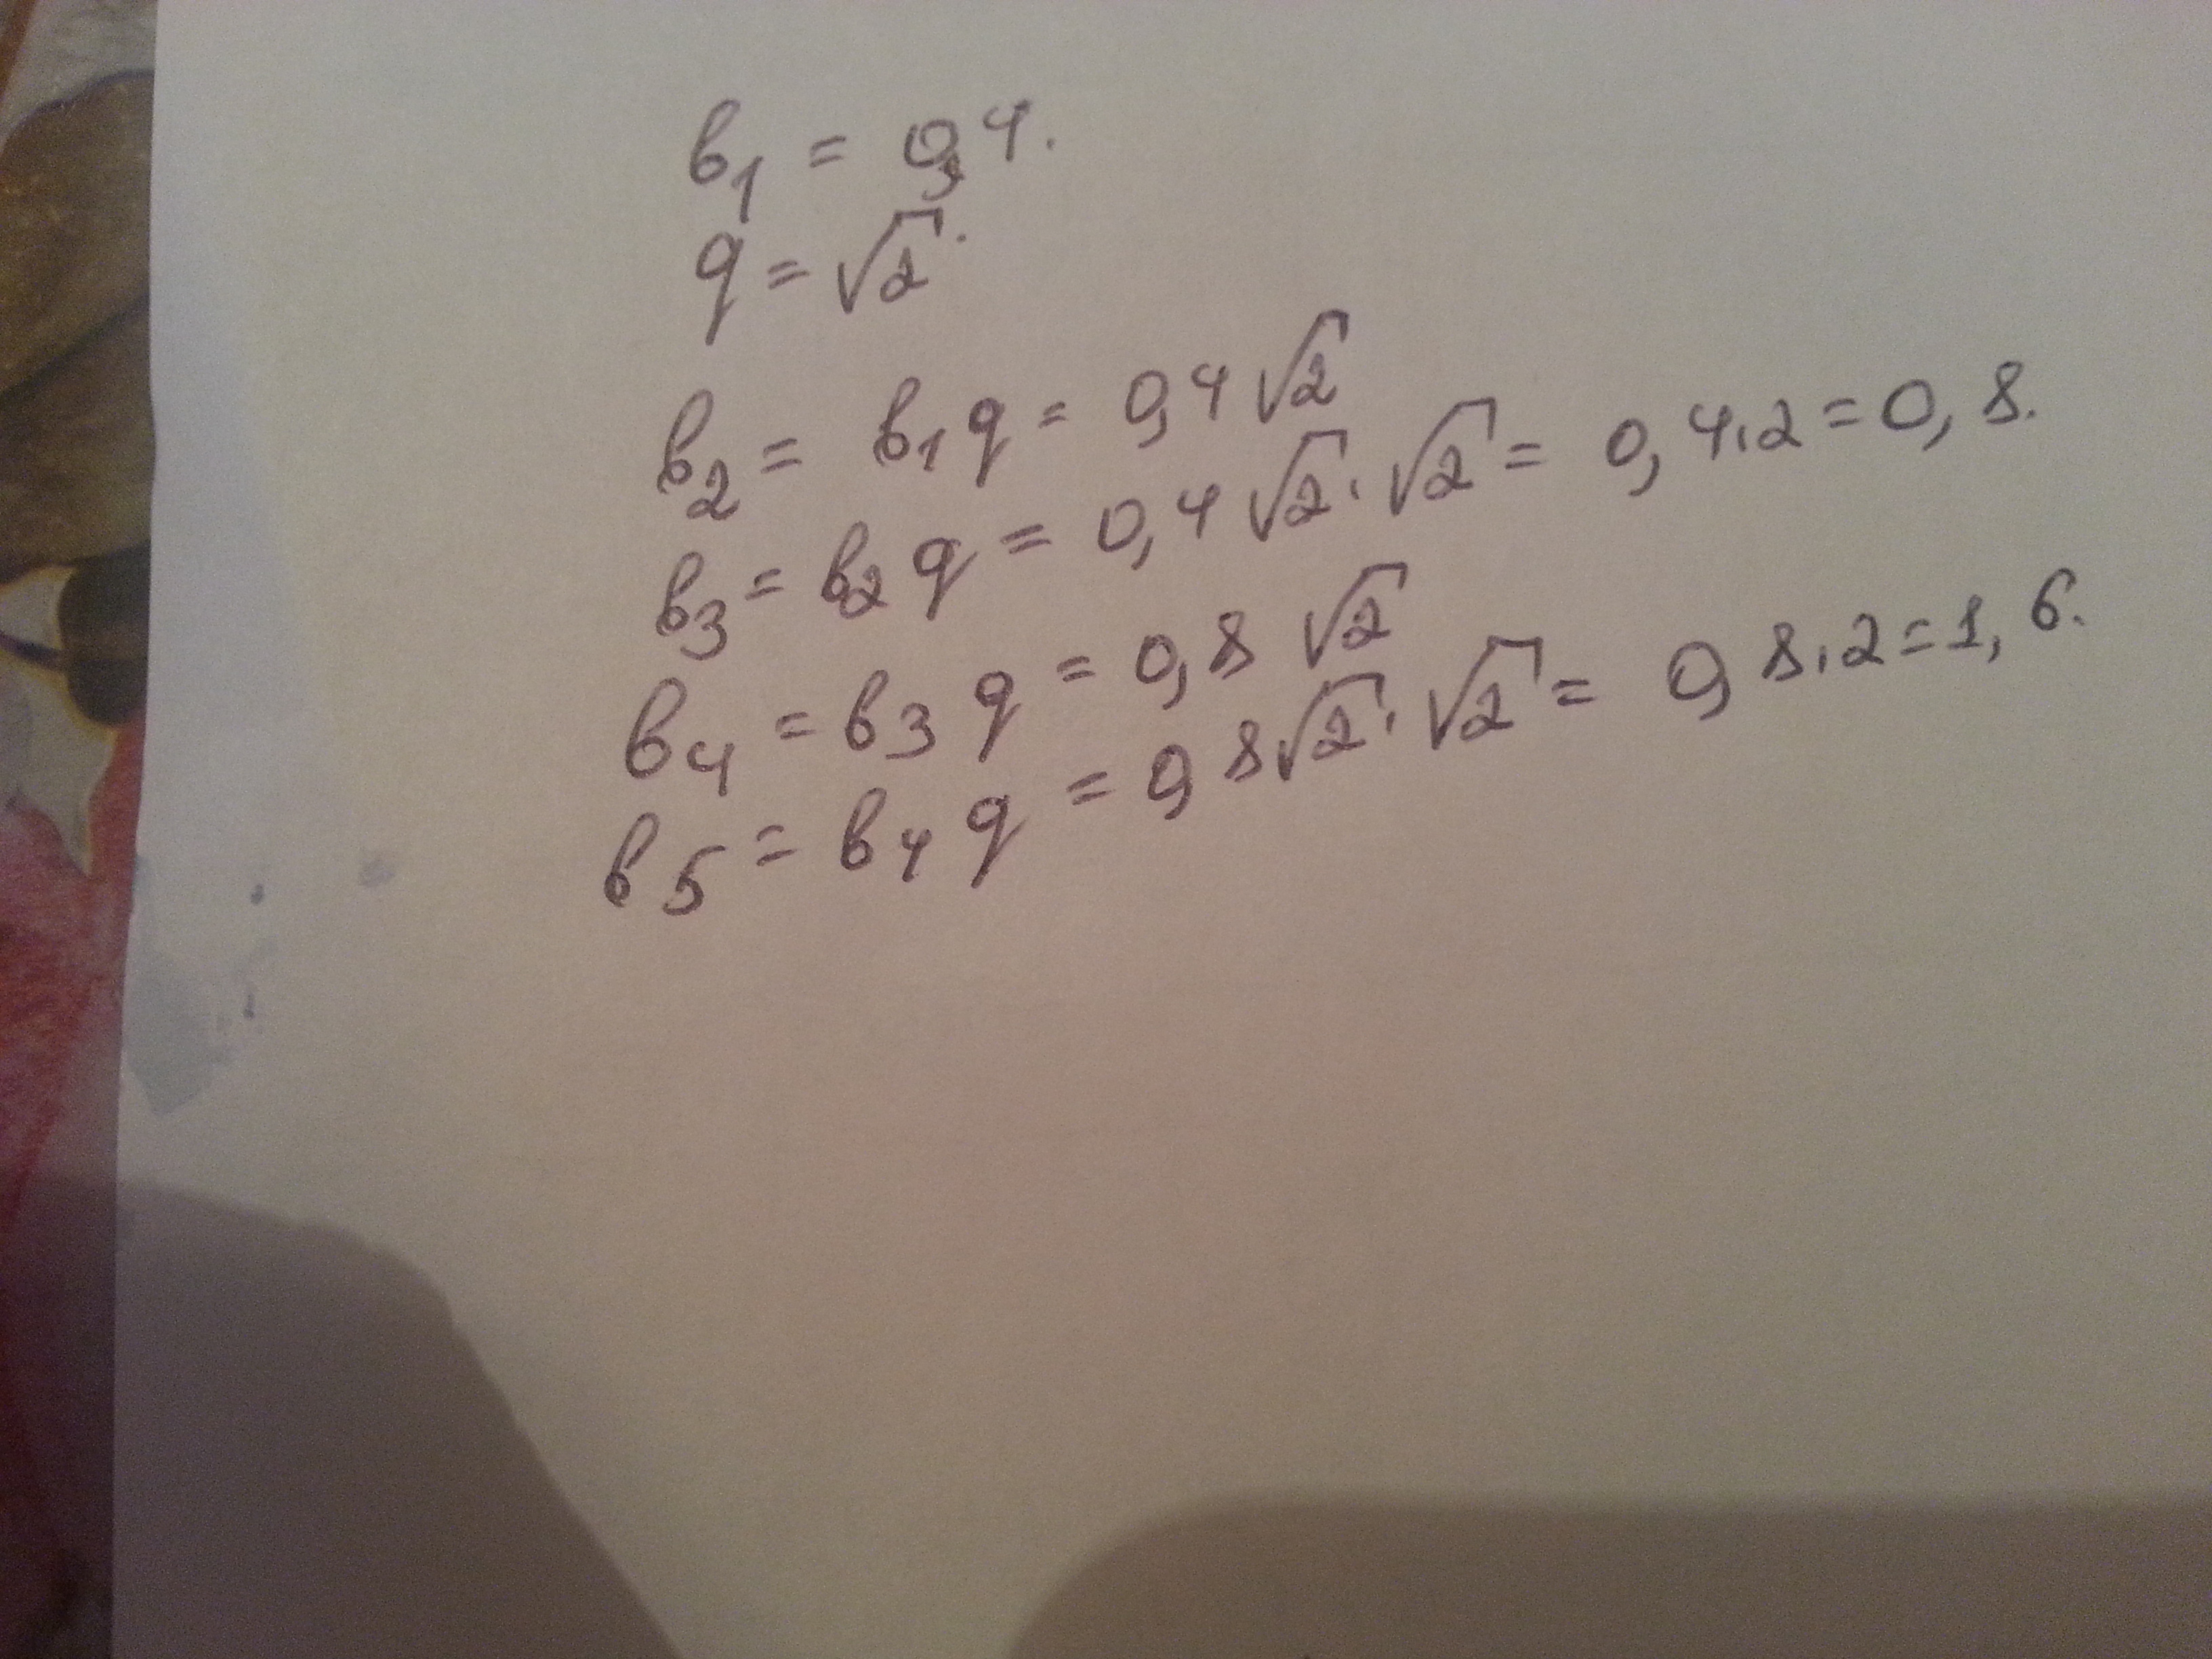 в₁ = 0,4.
q = √2.
в₂ = в₁q = 0,4√2
в₃ = в₂q = 0,4√2·√2 = 0,4·2=0,8.
в₄ = в₃q = 0,8√2
в₅ = в₄q = 0,8√2·√2 = 0,8·2=1,6.